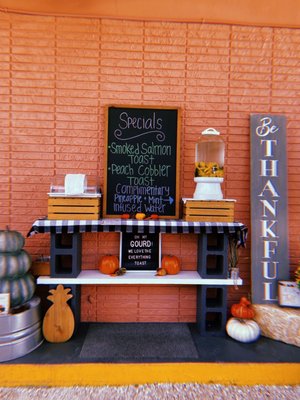 Specials
• Smoked Salmon
Toast
• Peach Cobbler
Toast
Complimentary
Pineapple + Mint
Infused Water
OH MY
GOURD
WE LOVE THE
EVERYTHING
TOAST
Be
THANKFUL